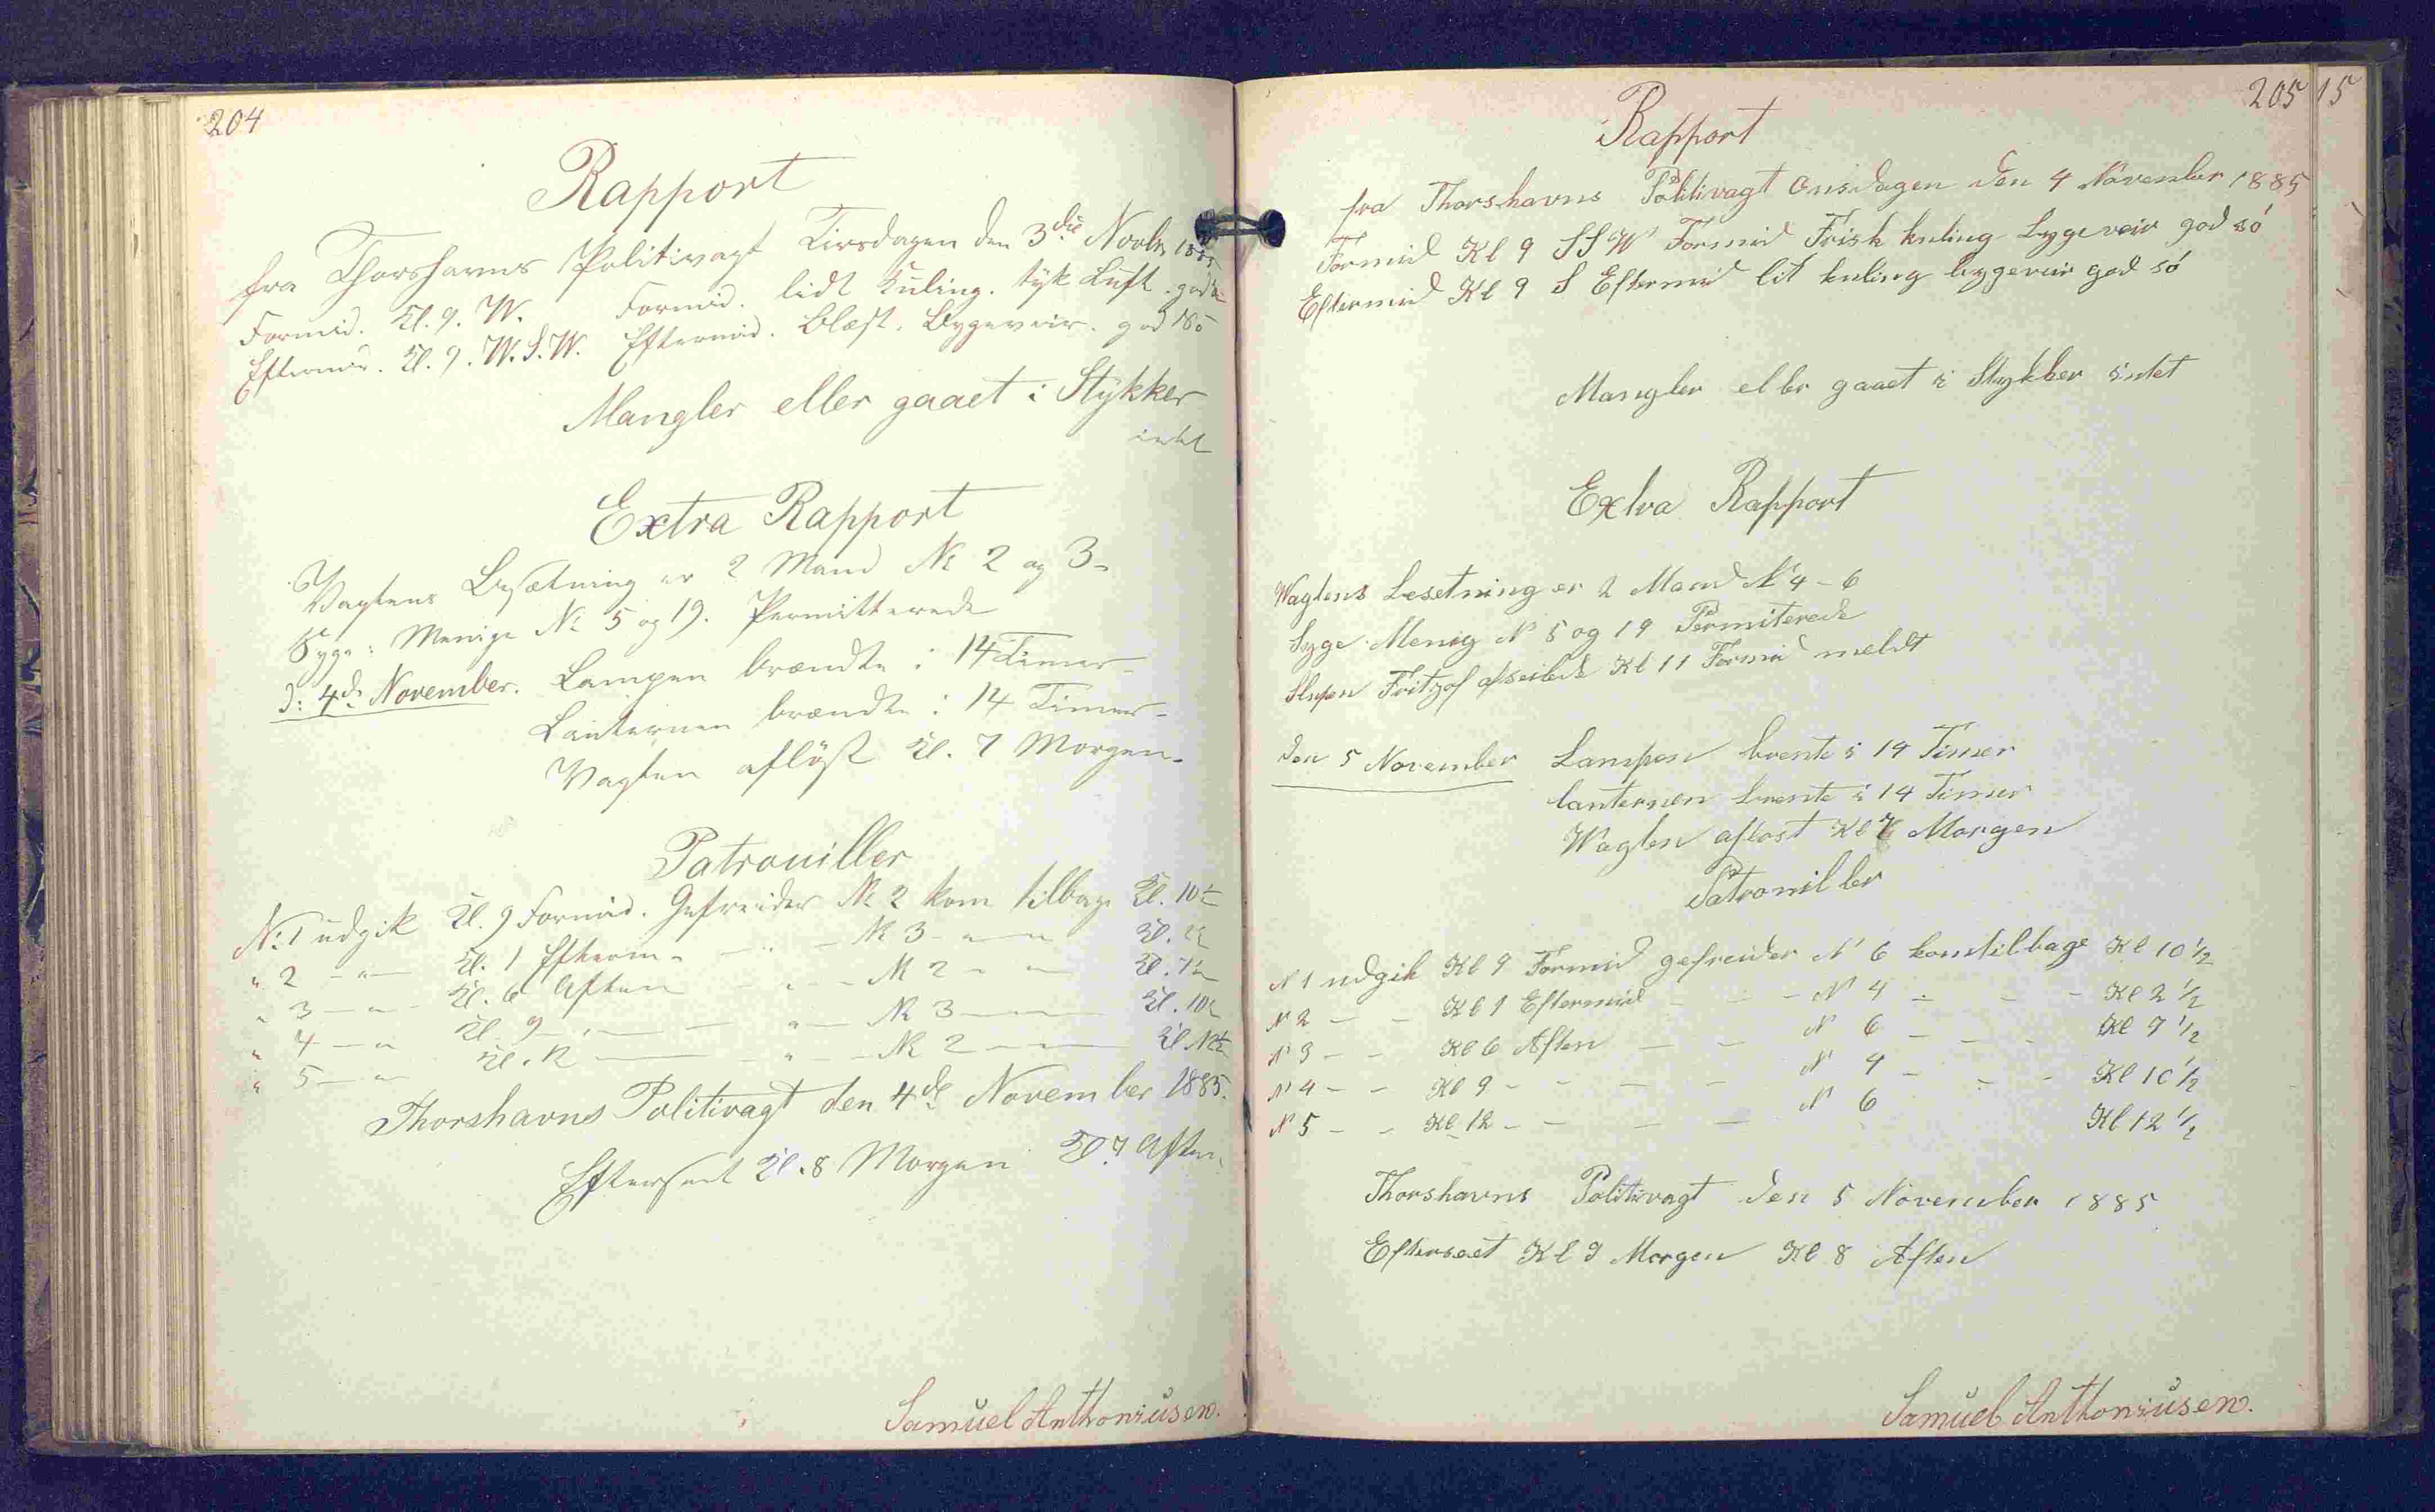 204
Rapport
fra Thorshavns Politivagt Tirsdagen den 3die Novbr. 1885
Formid. Kl. 9. W. Formid. lidt Kuling. tyk Luft. god
Eftermid. Kl. 9. W.S.W. Eftermid. Blæst. Bygeveir. god
Mangler eller gaaet i Stykker
intet
Extra Rapport
Vagtens Besætning er 2 Mand № 2 og 3-
Syge: Menige № 5 og 19. Permitterede
D: 4de November. Lampen brændte i 14 Timer-
Lanternen brændte i 14 Timer-
Vagten aflöst Kl. 7 Morgen-
Patrouiller
№ 1 udgik Kl. 9 Formid. Gefreider № 2 kom tilbage Kl. 10½
" 2 - " - Kl. 1 Efterm. - " - № 3 - " - " Kl. 2½
" 3 - " - Kl. 6 Aften " - - № 2 - " - " Kl. 7½
" 4 - " Kl. 9 - " - " - № 3 - Kl. 10½
" 5 - " Kl. 12 - " - № 2 - Kl. 12½
Thorshavns Politivagt den 4de November 1885.
Efterseet Kl. 8 Morgen Kl. 7 Aften.
Samuel Anthoniusen.
205
15
Rapport
fra Thorshavns Politivagt Onsdagen den 4 November 1885
Formid Kl 9 SSW Formid Frisk kuling bygeveir god só
Eftermid Kl 9 S Eftermid lit kuling bygeveir god só
Mangler eller gaaet i Stykker intet
Extra Rapport
Wagtens besetning er 2 Mand № 4 - 6
Syge Menig № 5 og 19 Permiterede
Slupen Fritzof afseilede Kl 11 Formid meldt
den 5 November Lampen brente i 14 Timer
lanternen brente i 14 Timer
Wagten aflost Kl 7 Morgen
Patrouiller
№ 1 udgik Kl 9 Formid gefreider № 6 kom tilbage Kl 10½
№ 2 - - Kl 1 Eftermid - - - № 4 - - - Kl 2½
№ 3 - - Kl 6 Aften - - № 6 - - - Kl 7½
№ 4 - - Kl 9 - - - - № 4 - - - Kl 10½
№ 5 - - Kl 12 - - - - № 6 Kl 12½
Thorshavns Politivagt den 5 November 1885
Efterseet Kl 9 Morgen Kl 8 Aften
Samuel Anthoniusen.